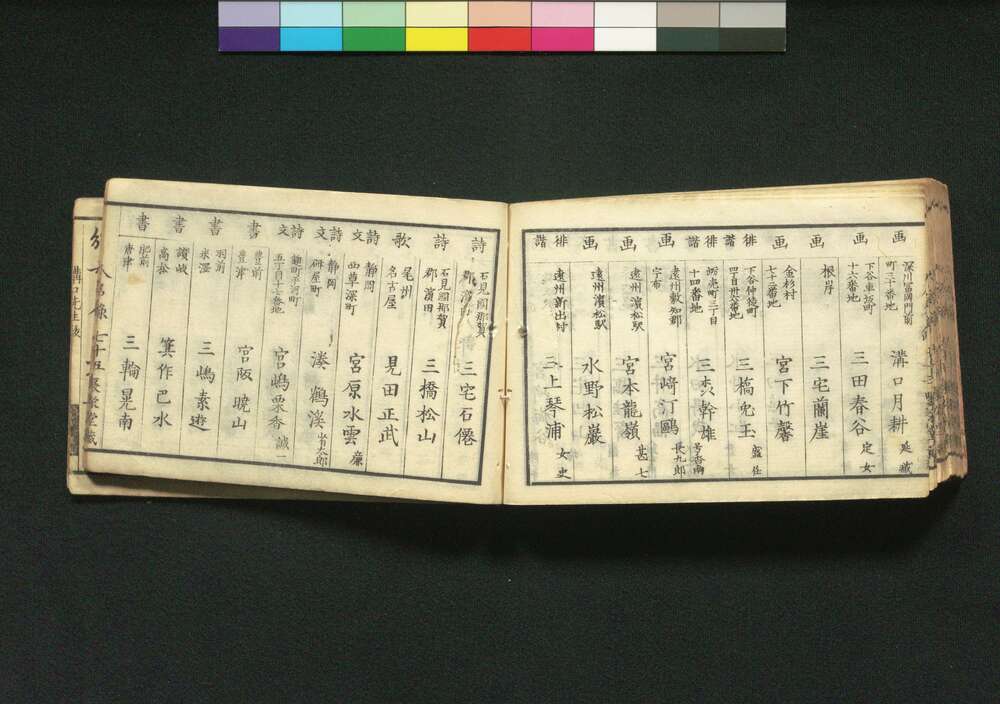 画 深川冨岡門前町三十番地 溝口月耕 延蔵
画 下谷車坂町十六番地 三田春谷 定女
画 根岸 三宅蘭崖
画 金杉村七十三番地 宮下竹馨
俳諧 下谷仲徒町四丁目卅六番地 三橋兎玉 盛任
俳諧 蛎壳町三丁目十四番地 三木幹雄 号香雨
画 遠州敷知郡宇布 宮﨑汀鷗 長九郎
画 遠州濱松駅 宮本龍嶺 甚七
画 遠州濱松駅 水野松巖
俳諧 遠州新出村 三上琴浦 女史
詩 石見國那賀郡濱田 三宅石僊
詩 石見國那賀郡濱田 三橋松山
歌 尾州名古屋 見田正武
詩文 静岡西草深町 宮原水雲 廉
詩文 静岡研屋町 湊鶴溪 省太郎
詩文 麹町平河町五丁目十七番地 宮嶋栗香 誠一
書 豊前豊津 宮阪暁山
書 羽前米澤 三嶋素遊
書 讃岐高松 箕作巴水
書 肥前唐津 三輪晃南
七十五
溝口先生